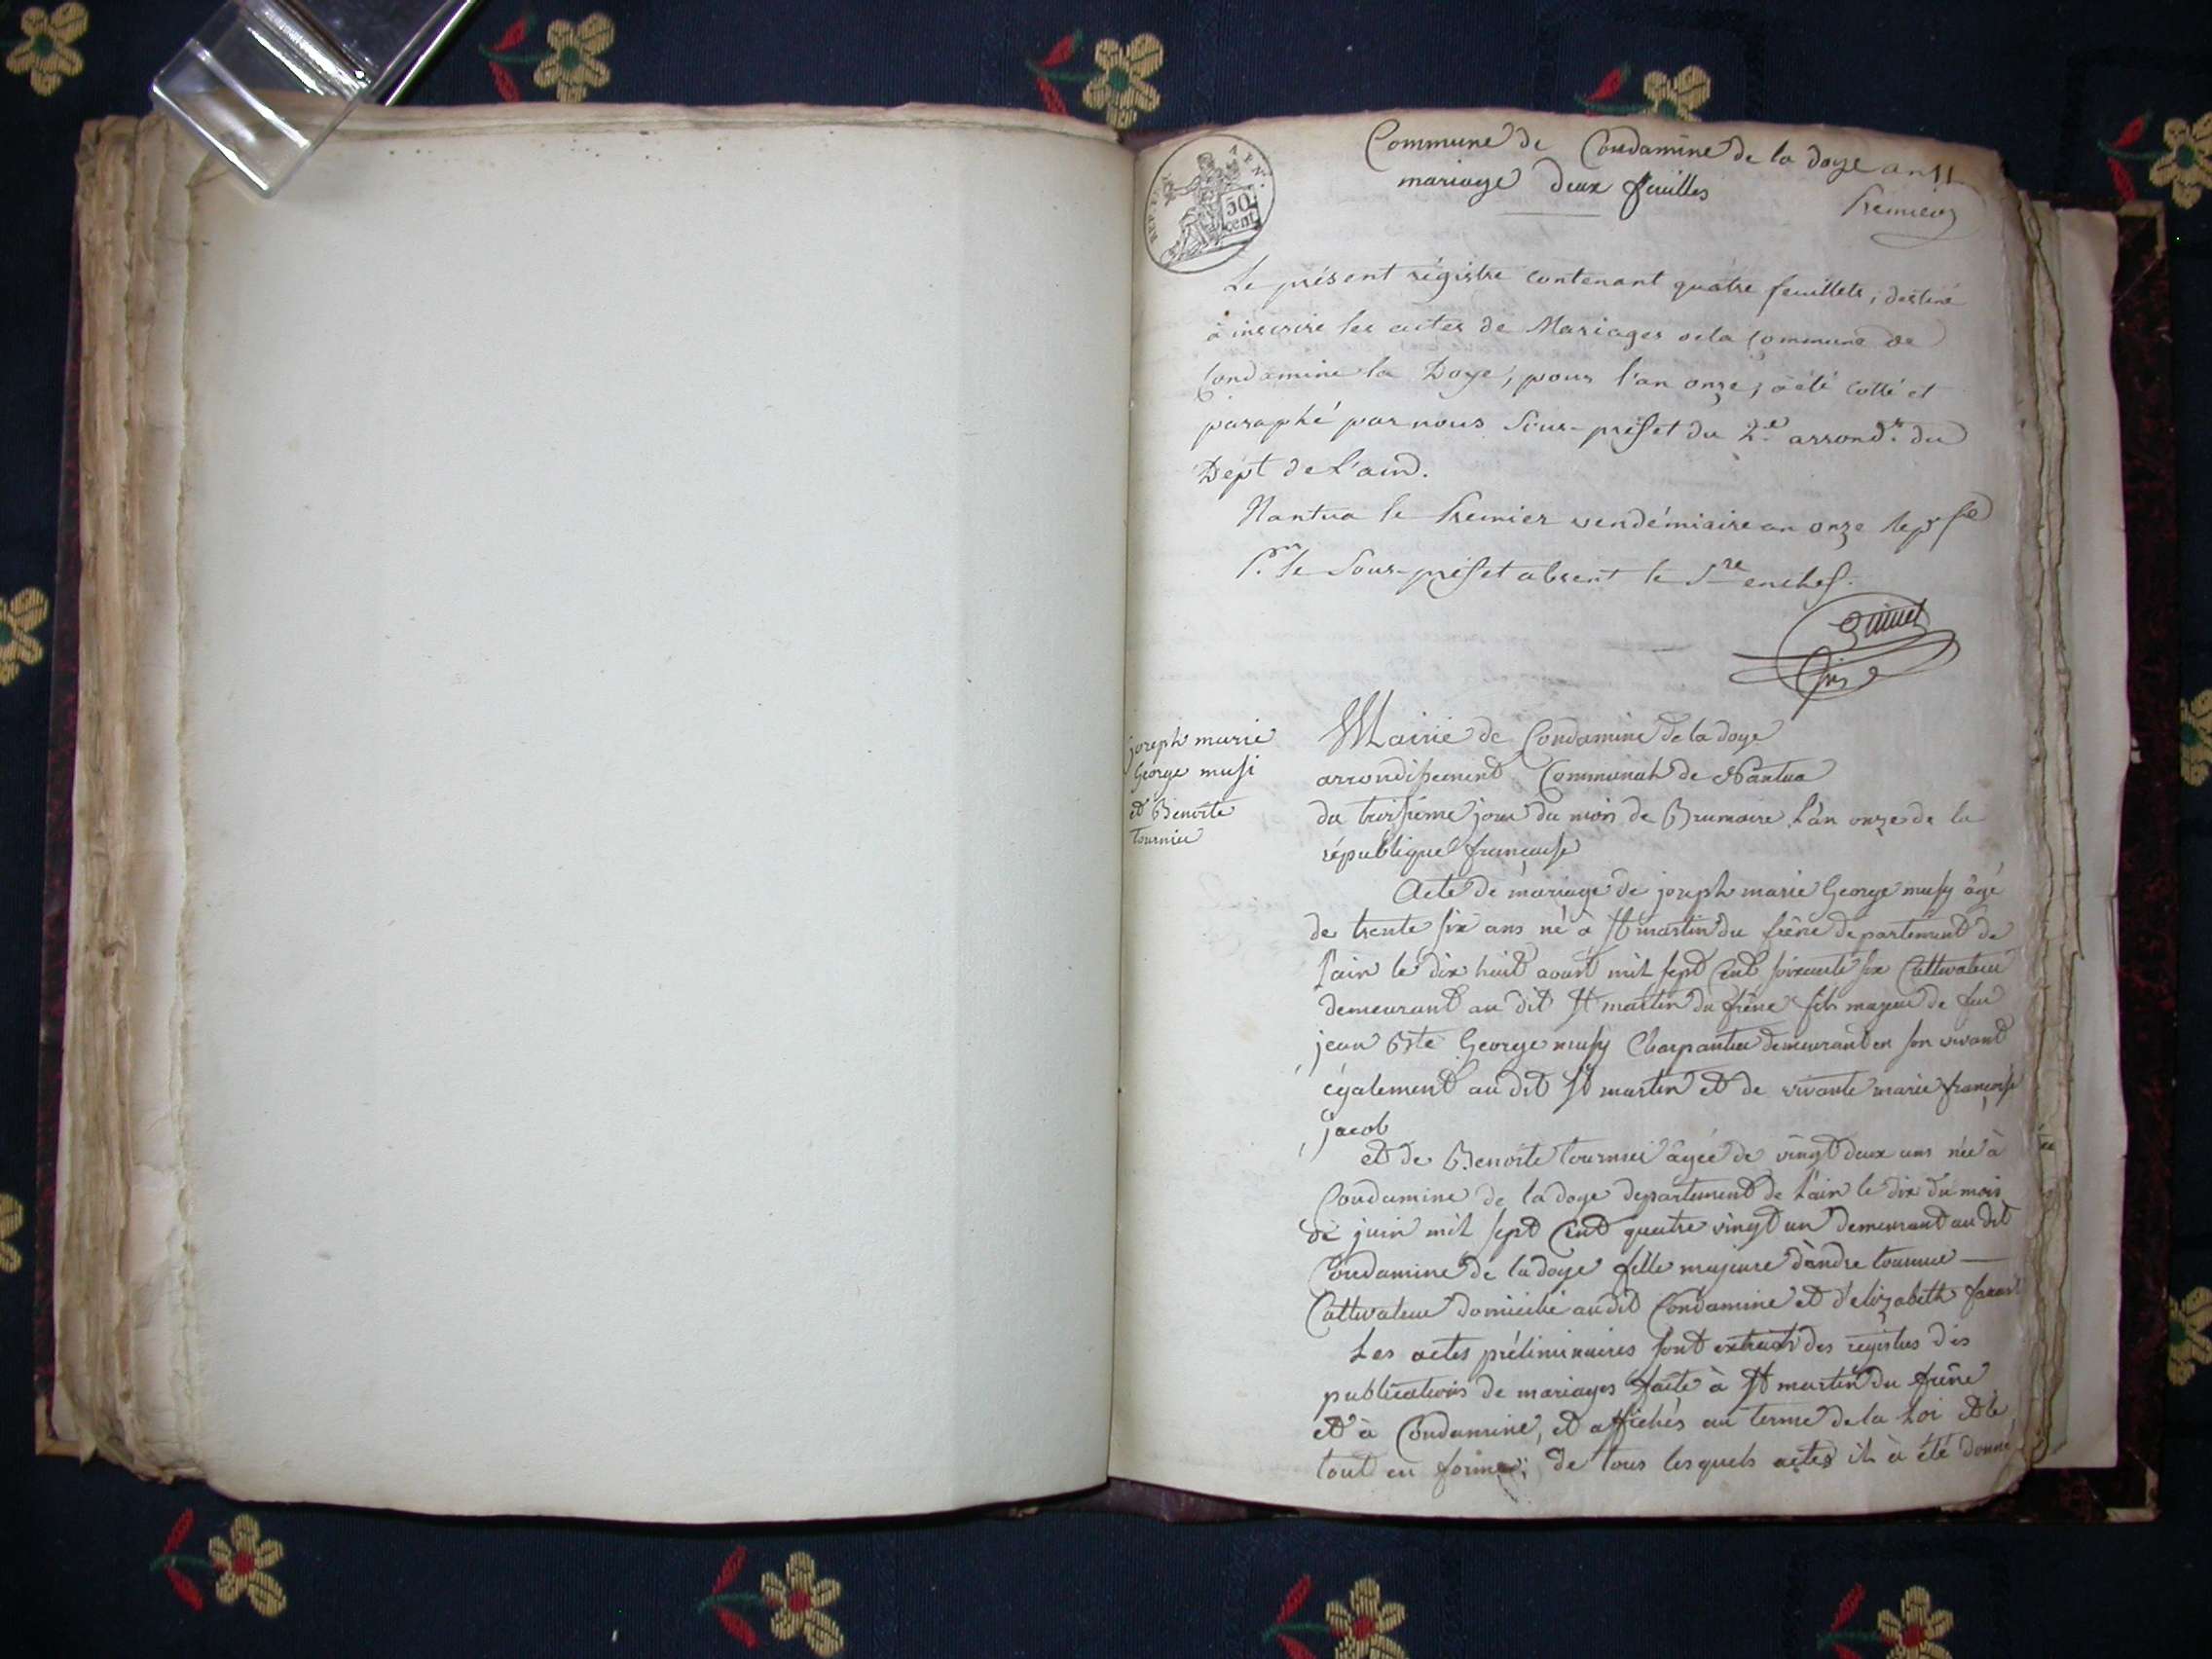 Commune de Condamine de la doye an 11
mariage deux feuilles
Premier
REP. FRA
50
cent
Le présent régistre contenant quatre feuillets, destiné
à inscrire les actes de Mariages de la Commune de
Condamine la Doye, pour l'an onze, a été cotté et
paraphé par nous Sous-préfet du 2.e arrond.t du
Dépt de L'ain.
Nantua le Premier vendémiaire an onze
P.r le Sous-préfet absent le S.re en chef.
joseph marie
George musi
et Benoite
tournier
Mairie de Condamine de la doye
arrondissement Communal de Nantua
du troisième jour du mois de Brumaire L'an onze de la
république française
Acte de mariage de joseph marie George musy âgé
de trente six ans né à St martin du frêne departement de
l'ain le dix huit aoust mil sept Cent soixante six Cultivateur
demeurant au dit St martin du frêne fils majeur de feu
jean Bte George musy Charpantier demeurant en son vivant
également au dit St martin et de vivante marie françoise
jacob
et de Benoite tournier âgée de vingt deux ans née à
Condamine de la doye departement de l'ain le dix du mois
de juin mil sept Cent quatre vingt un demeurant au dit
Condamine de la doye fille majeure d'andre tournier
Cultivateur domicilié au dit Condamine et d'elizabeth
Les actes préliminaires sont extraits des registres des
publications de mariages faite à St martin du frêne
et à Condamine, et affichés au terme de la Loi et le
tout en forme; de tous lesquels actes il à été donné